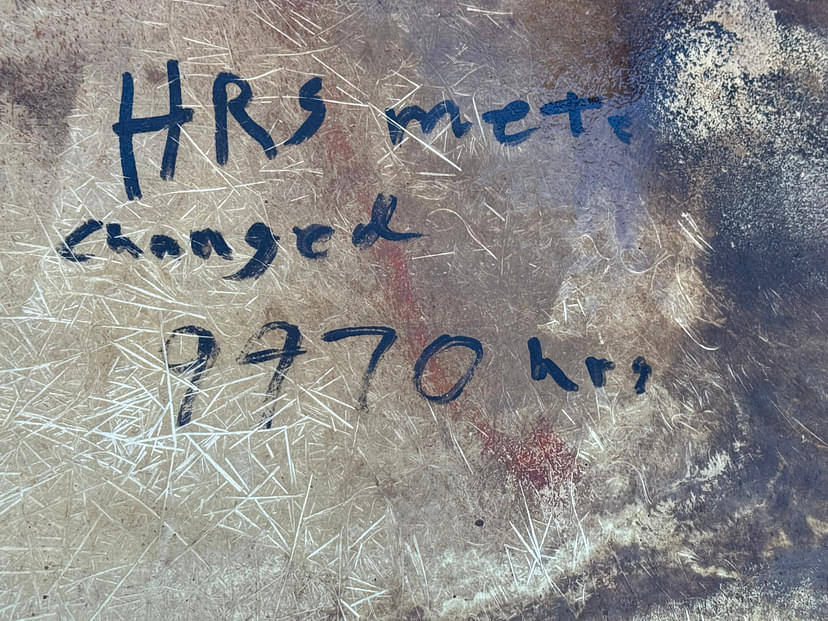 HRS mete
changed
9970 hrs